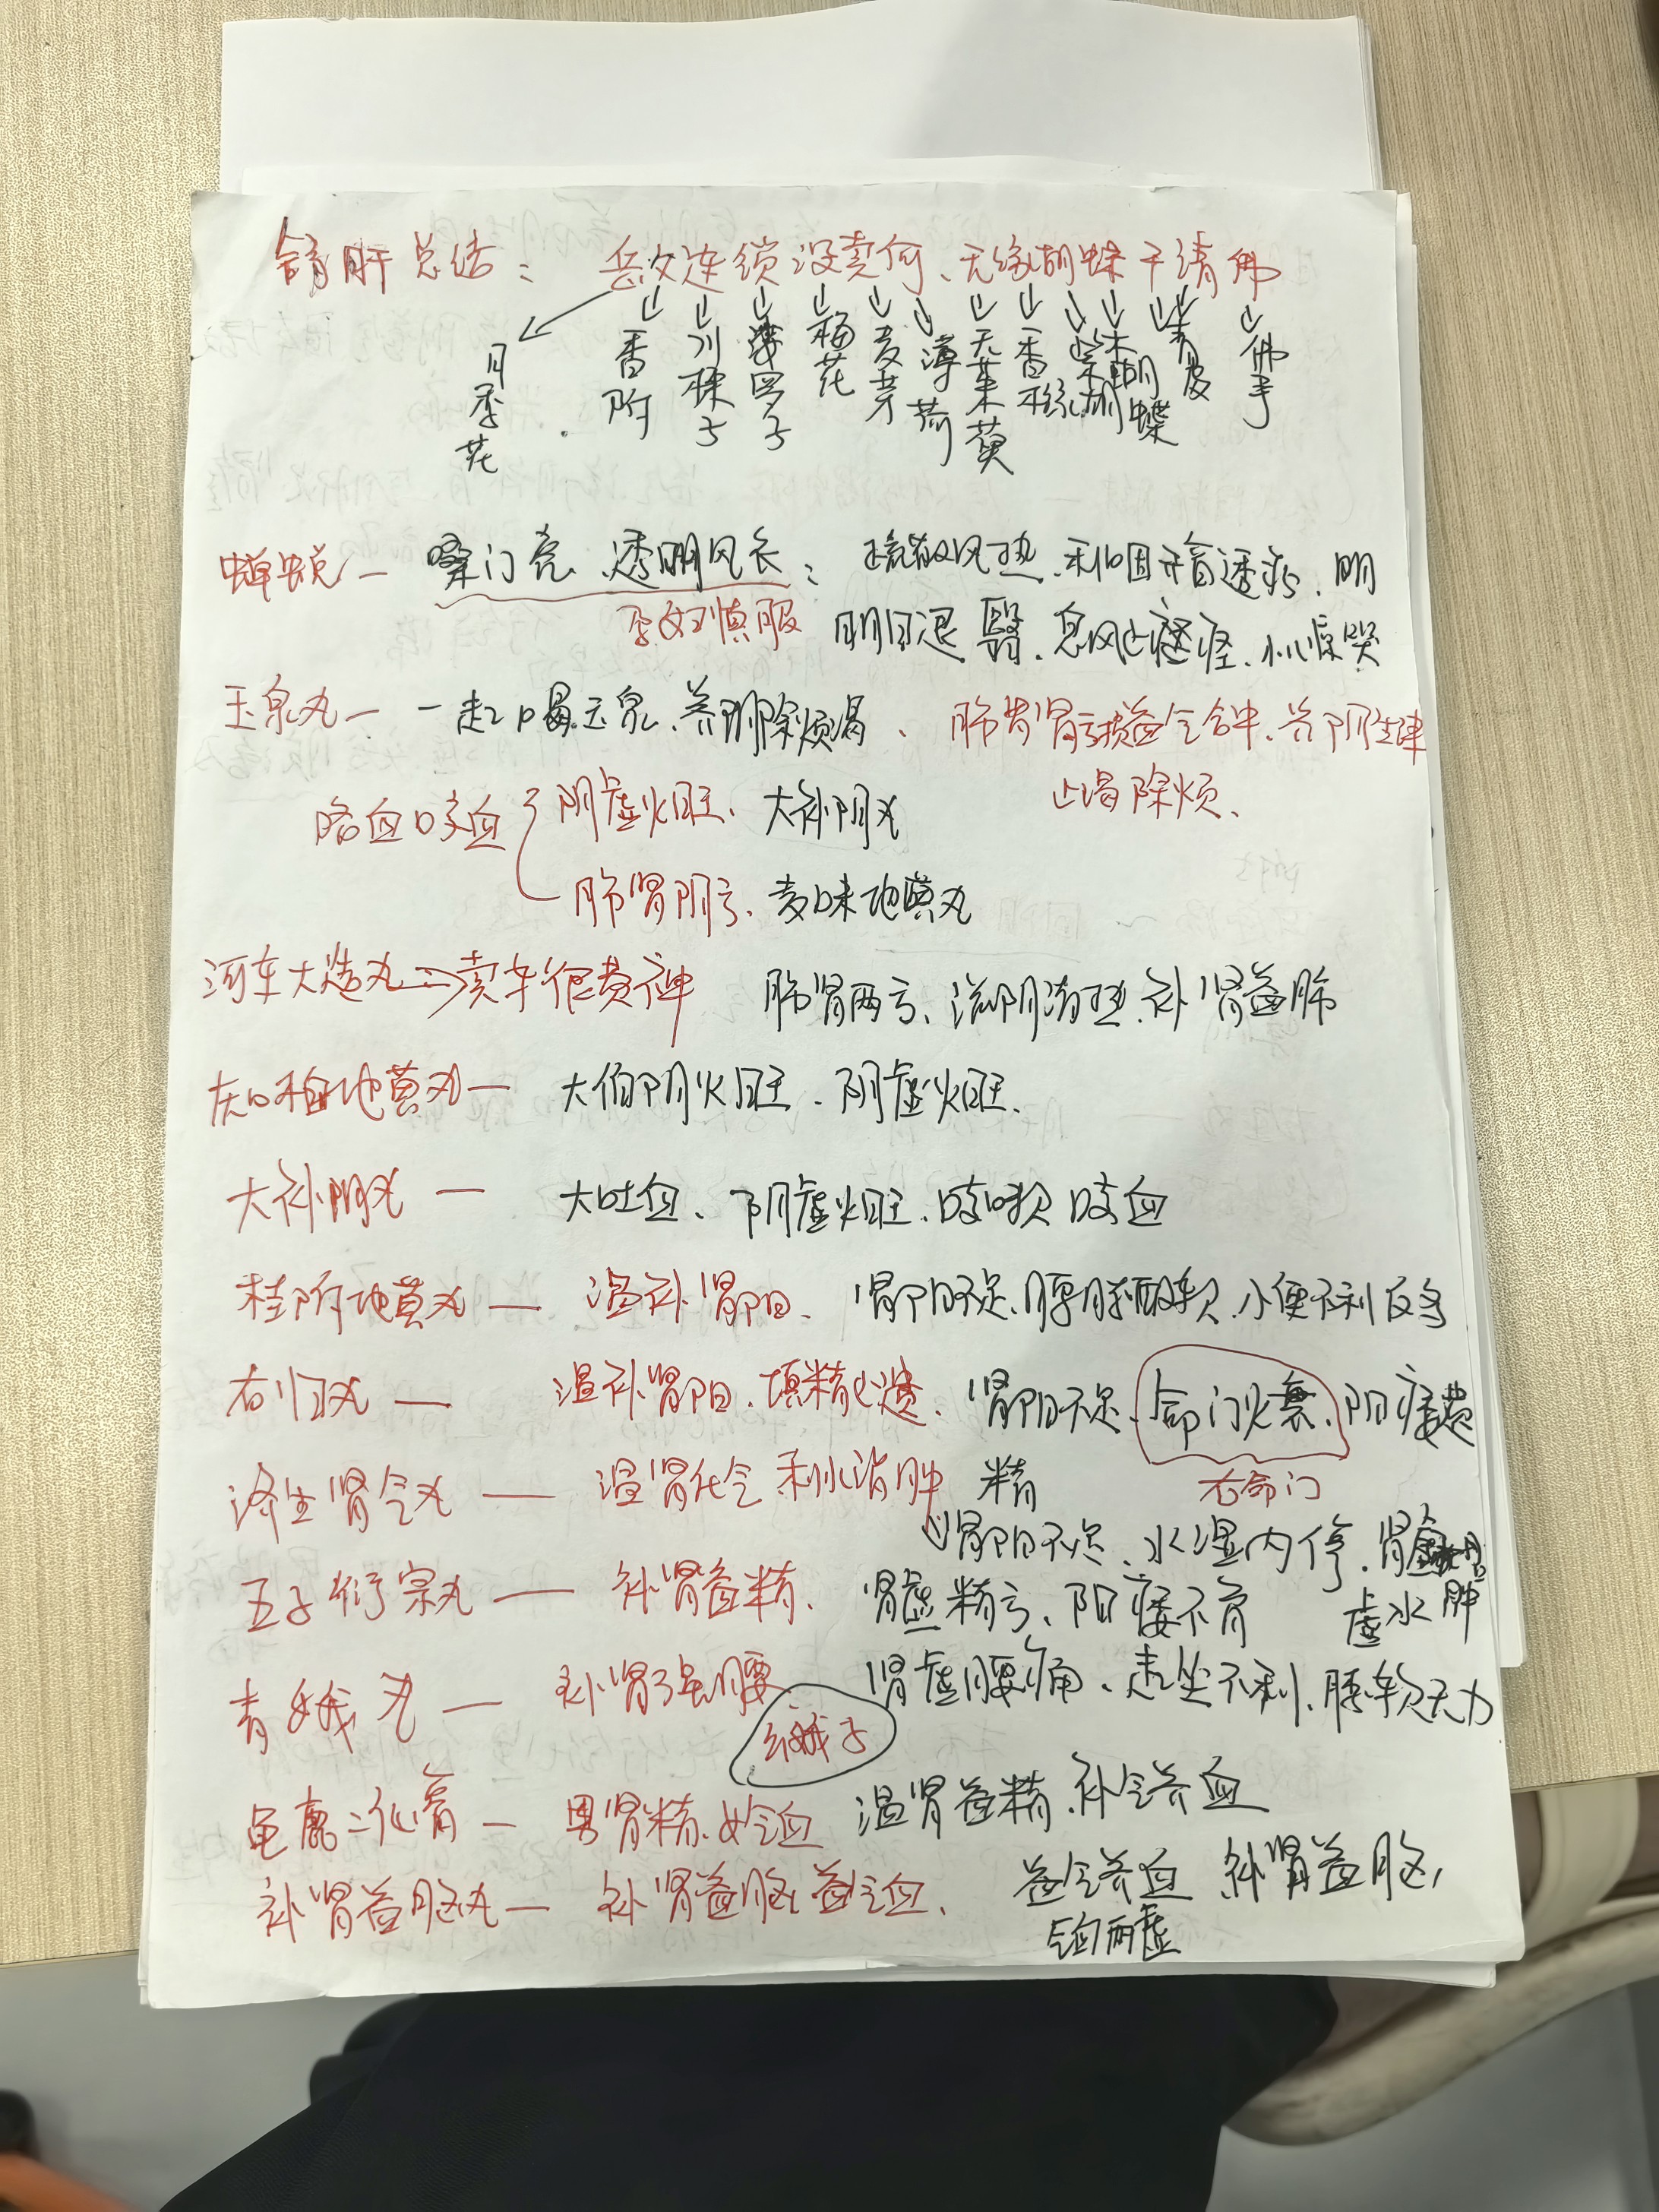 肝总结：岳父连锁没卖何、无缘胡蝶干请佛
月季花 香附 川楝子 子 梅花 麦芽 薄荷 无茱萸 香橼 柴胡 木蝴蝶 青皮 佛手
蝉蜕— 嗓门亮、透明风长：疏散风热、利咽开音透疹、明
孕妇慎服 明目退翳、息风止痉、小儿惊哭
玉泉丸— 一起口喝玉泉、养阴除烦渴、肺胃肾亏损益气合中、养阴生津
止渴除烦、
咯血咳血 阴虚火旺、大补阴丸
肺肾阴亏、麦味地黄丸
河车大造丸→卖车很费神 肺肾两亏、滋阴清热、补肾益肺
知柏地黄丸— 大伯阴火旺、阴虚火旺、
大补阴丸— 大吐血、阴虚火旺、咳嗽咳血
桂附地黄丸— 温补肾阳、肾阳不足、腰膝酸软、小便不利反多
右归丸— 温补肾阳、填精止遗、肾阳不足、命门火衰、阳痿遗
精 右命门
济生肾气丸— 温肾化气 利水消肿
肾阳不足、水湿内停、肾
虚水肿
五子衍宗丸— 补肾益精、肾虚精亏、阳痿不育
青娥丸— 补肾强腰、肾虚腰痛、起坐不利、膝软无力
龟鹿二仙膏— 男肾精、女气血 温肾益精、补气养血
补肾益脑丸— 补肾益脑益气血、益气养血 补肾益脑，
气血两虚